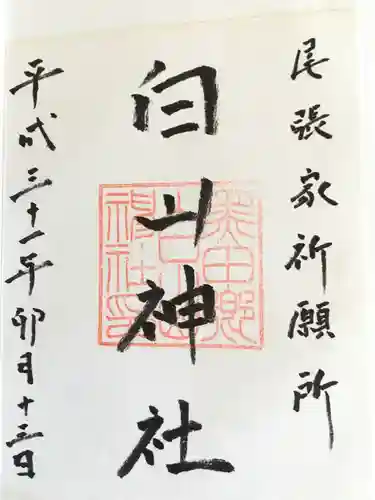 尾張家祈願所
白山神社
平成三十一年卯月十三日
田郷
神社印